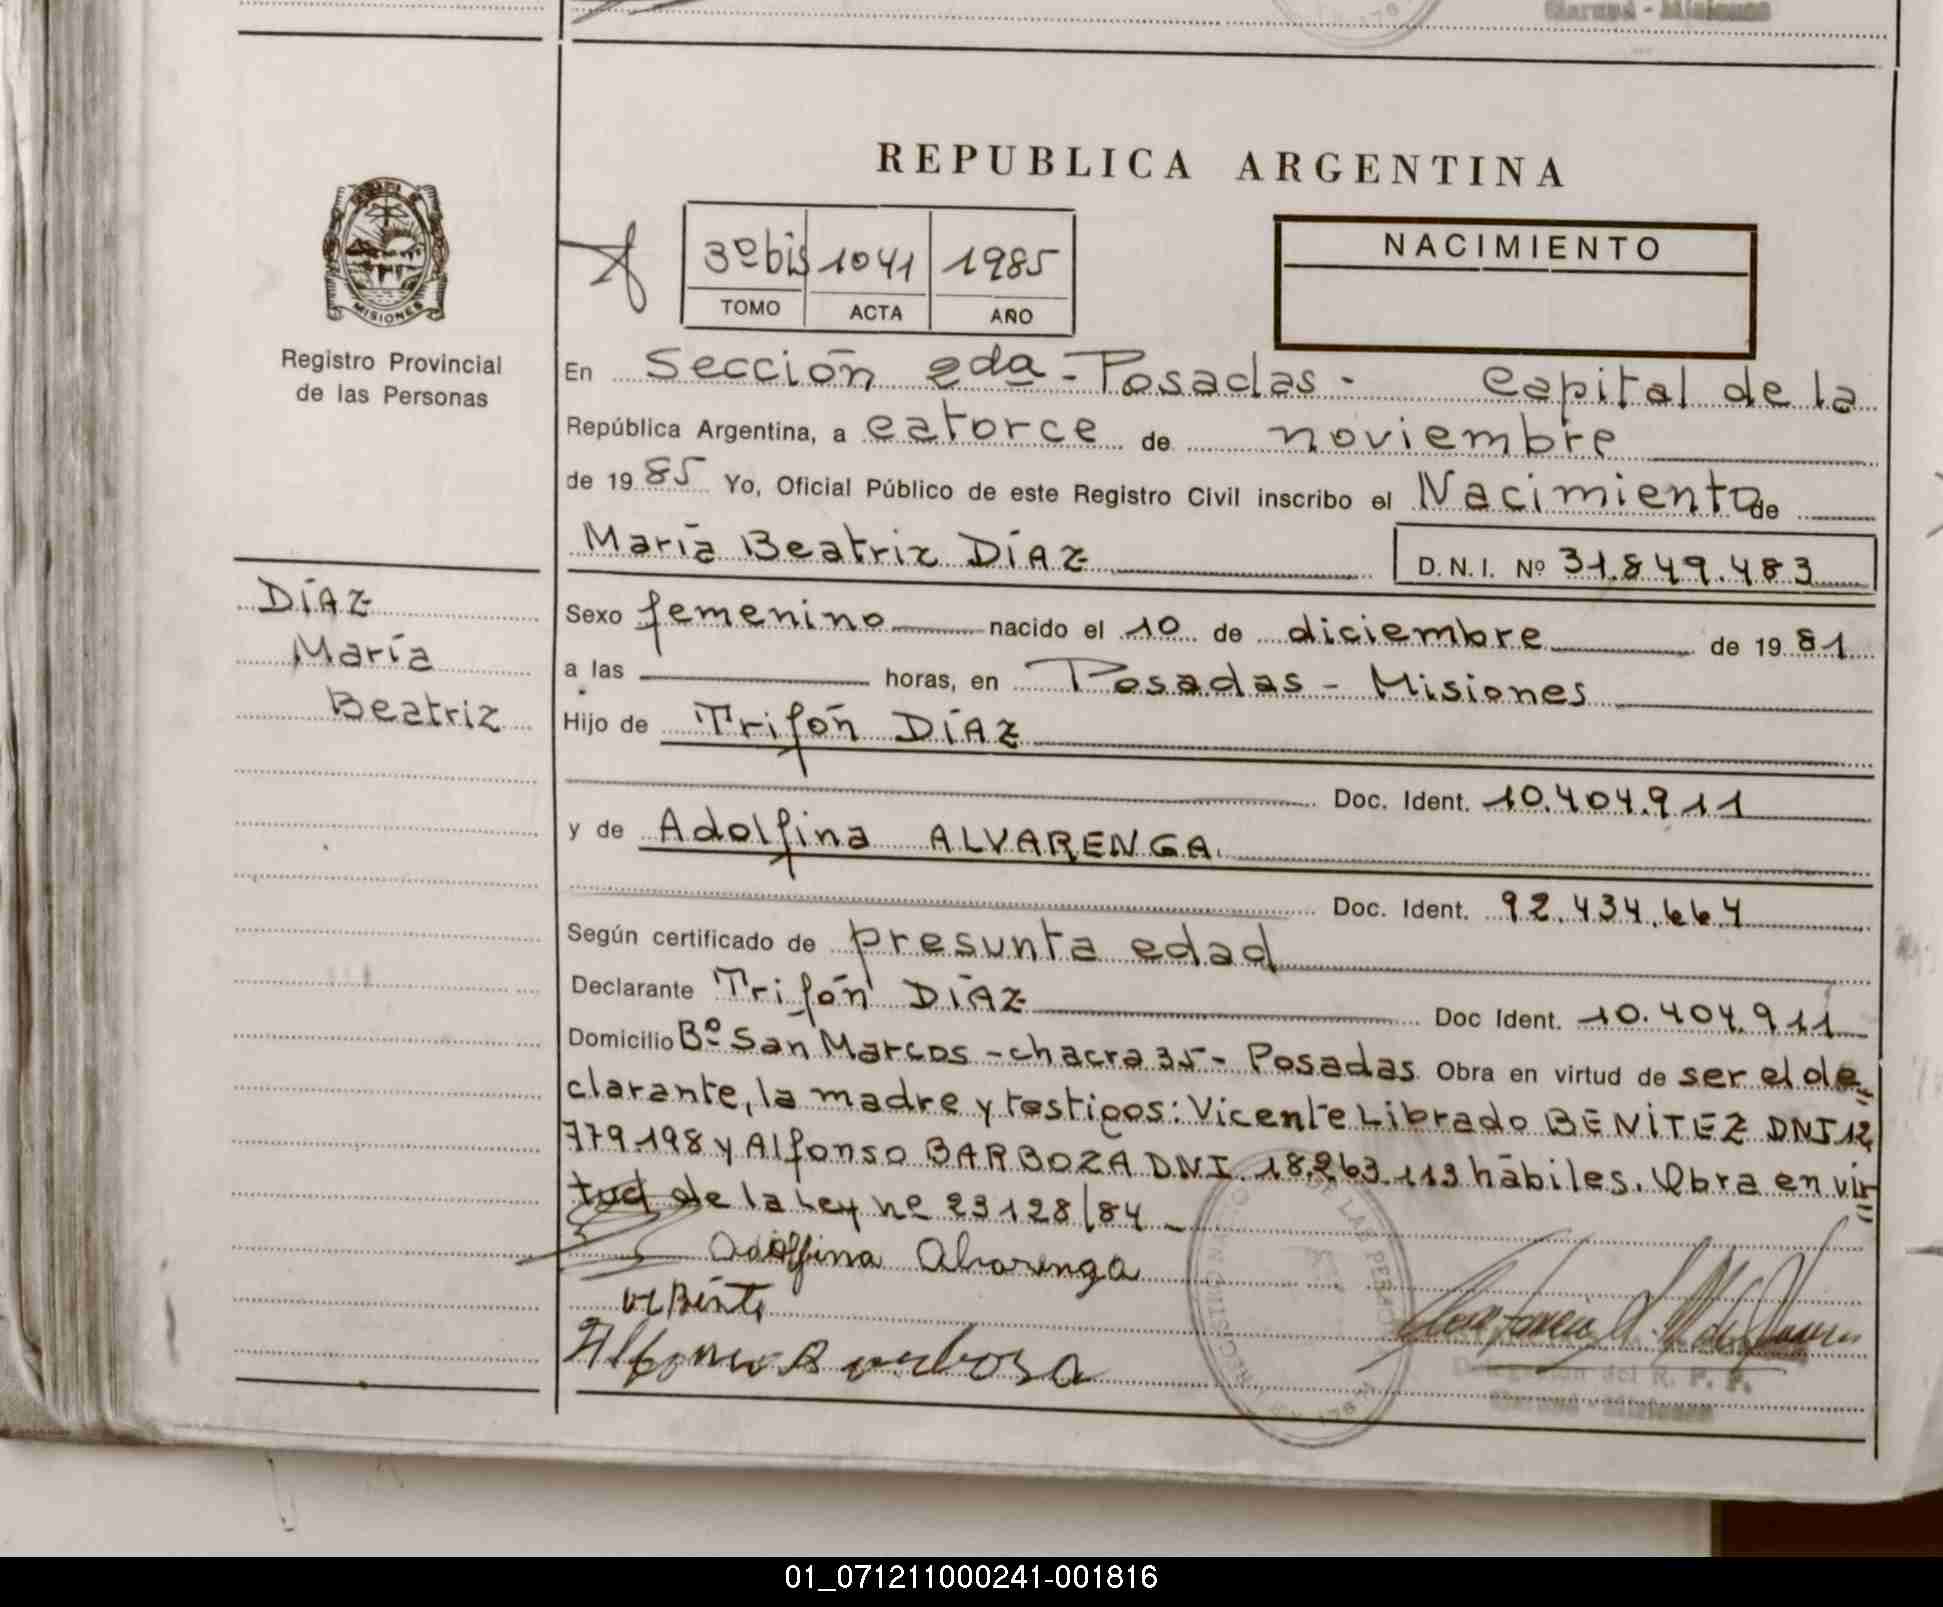 REPUBLICA ARGENTINA
3º bis 1041 1985
TOMO ACTA AÑO
NACIMIENTO
MISIONES
Registro Provincial
de las Personas
En Sección 2da - Posadas - Capital de la
República Argentina, a catorce de noviembre
de 1985 Yo, Oficial Público de este Registro Civil inscribo el Nacimiento de
María Beatriz DÍAZ D.N.I. Nº 31.849.483
DÍAZ
María
Beatriz
Sexo femenino nacido el 10 de diciembre de 1981
a las horas, en Posadas - Misiones
Hijo de Trifón DÍAZ
Doc. Ident. 10.404.911
y de Adolfina ALVARENGA
Doc. Ident. 92.434.664
Según certificado de presunta edad
Declarante Trifón DÍAZ Doc Ident. 10.404.911
Domicilio Bº San Marcos - chacra 35 - Posadas Obra en virtud de ser el de
clarante, la madre y testigos: Vicente Librado BENÍTEZ DNI 12
779.198 y Alfonso BARBOZA DNI. 18.263.113 hábiles. Obra en vir
tud de la Ley nº 23128/84 -
Adolfina Alvarenga
Alfonso Barbosa
del R. P. P.
01_071211000241-001816